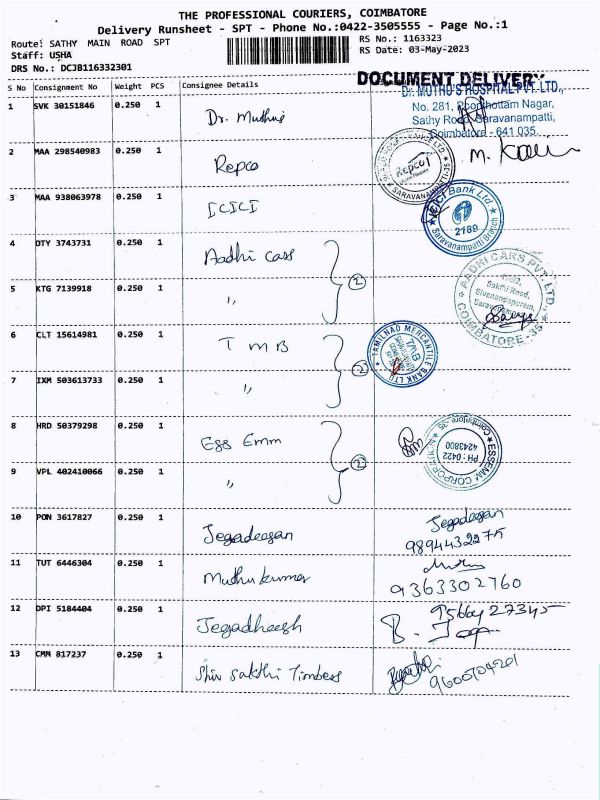 THE PROFESSIONAL COURIERS, COIMBATORE
Delivery Runsheet - SPT - Phone No.:0422-3505555 - Page No.:1
Route: SATHY MAIN ROAD SPT
RS No.: 1163323
Staff: USHA
RS Date: 03-May-2023
DRS No.: DCJB116332301
DOCUMENT DELIVERY
S No Consignment No Weight PCS Consignee Details
Dr. MUTHU'S HOSPITAL PVT. LTD.,
No. 281, Poonthottam Nagar,
Sathy Road, Saravanampatti,
Coimbatore - 641 035.
1 SVK 30151846 0.250 1 Dr. Muthus
2 MAA 298540983 0.250 1 Repco
Repco
SARAVANAMPATTI-35
M.
3 MAA 938063978 0.250 1 ICICI
ICICI Bank Ltd
2189
Saravanampatti Branch
4 OTY 3743731 0.250 1 Aadhi cars
5 KTG 7139918 0.250 1 "
2
AADHI CARS PVT. LTD.
Sakthi Road,
Sivanandapuram,
COIMBATORE-35
6 CLT 15614981 0.250 1 TMB
7 IXM 503613733 0.250 1 "
2
TAMILNAD MERCANTILE BANK LTD
TMB
8 HRD 50379298 0.250 1 Ess Emm
9 VPL 402410066 0.250 1 "
2
ESSEMM CORPORATION
Coimbatore-35
PH : 0422
4243800
10 PON 3617827 0.250 1 Jegadeesan
Jegadeesan
9894432275
11 TUT 6446304 0.250 1 Muthukumar
9363302760
12 DPI 5184404 0.250 1 Jegadheesh
13 CMM 817237 0.250 1 Shiv Sakthi Timbers